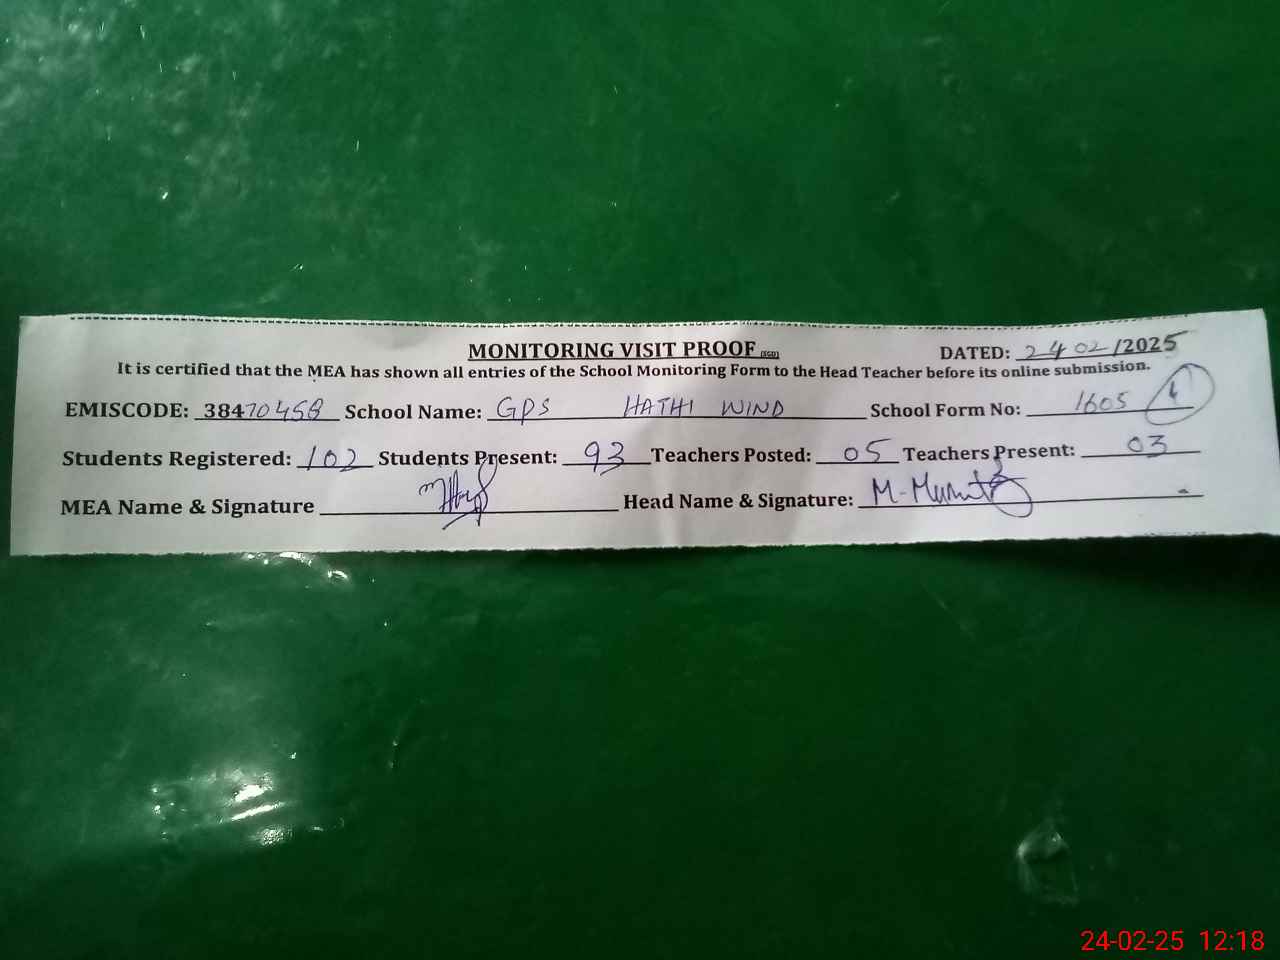 MONITORING VISIT PROOF (SGD) DATED: 24 02 /2025
It is certified that the MEA has shown all entries of the School Monitoring Form to the Head Teacher before its online submission.
EMISCODE: 38470458 School Name: GPS HATHI WIND School Form No: 1605
Students Registered: 102 Students Present: 93 Teachers Posted: 05 Teachers Present: 03
MEA Name & Signature Head Name & Signature: M-
24-02-25 12:18